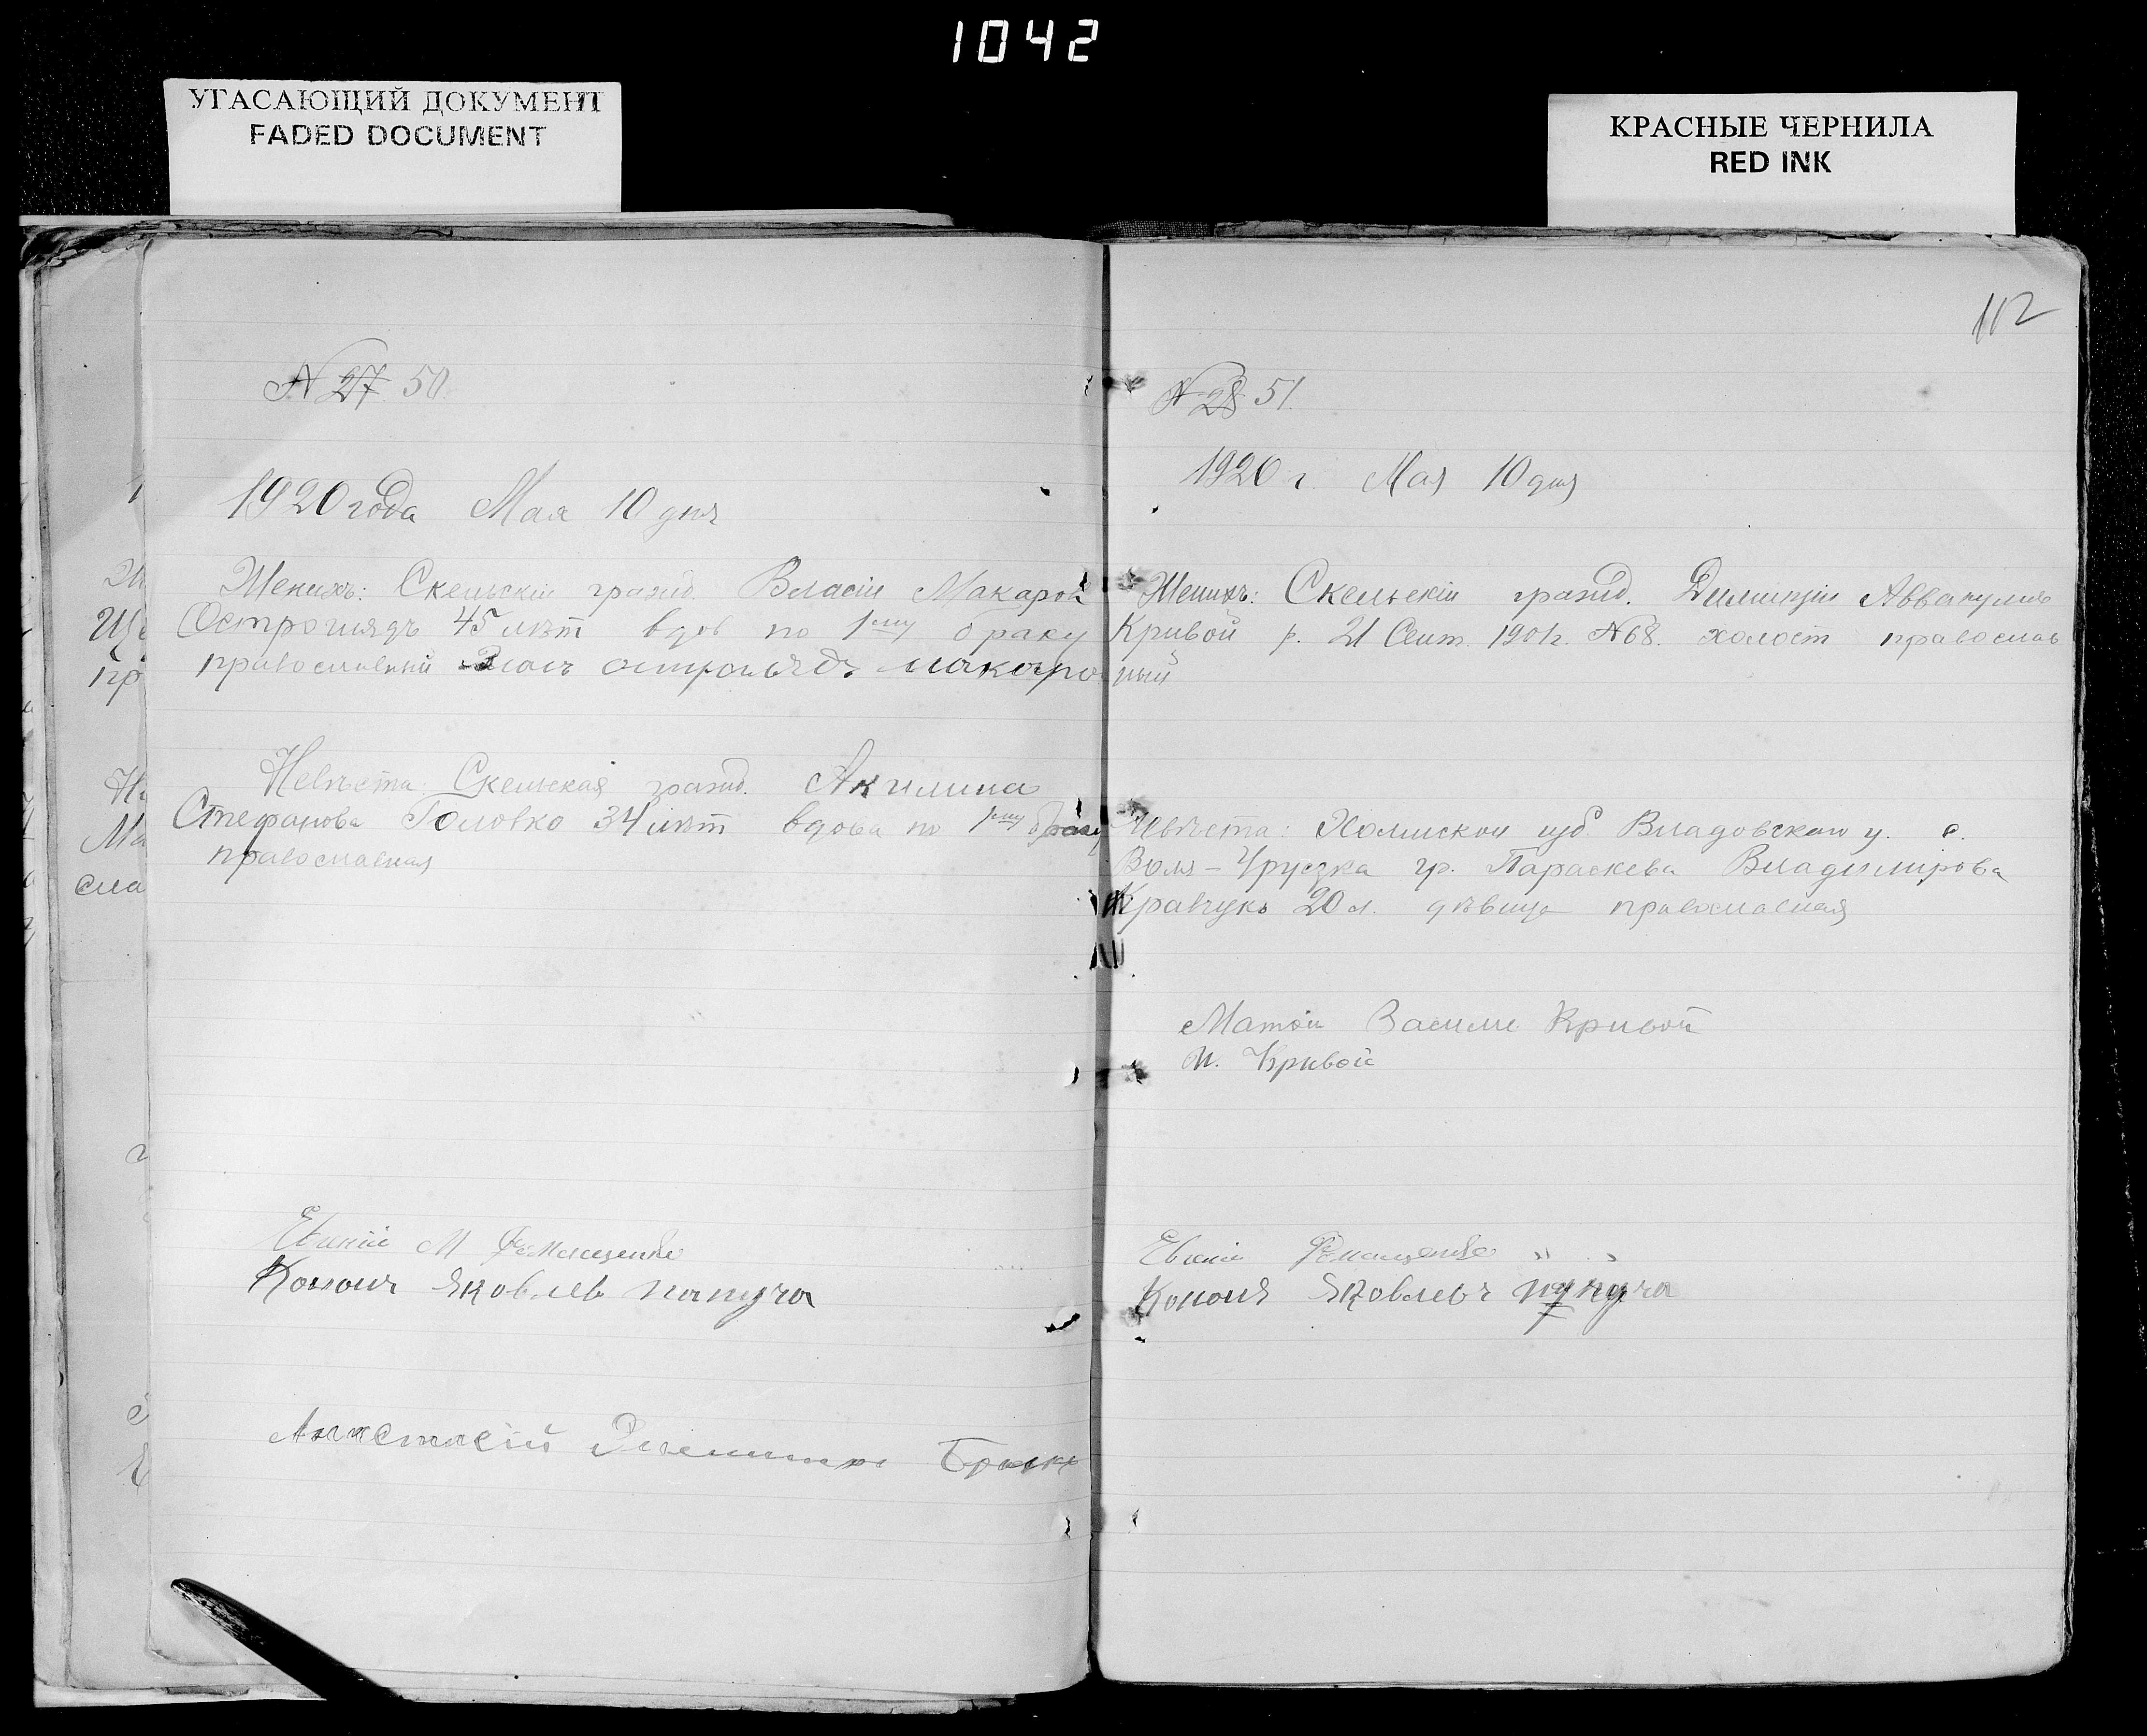 1042
УГАСАЮЩИЙ ДОКУМЕНТ
FADED DOCUMENT
КРАСНЫЕ ЧЕРНИЛА
RED INK
N 27 50.
1920 года Мая 10 дня
Женихъ: Скельскій гражд. Власій Макаров
Остроглядъ 45 лѣт вдов по 1му браку
православный остроглядъ макаро
Невѣста: Скельская гражд. Акилина
Стефанова Головко 34 лѣт вдова по 1му браку
православная
Евгеній М Романценко
Кононъ Яковлев папуча
Анастасій
112
N 28 51.
1920 г. Мая 10 дня
Женихъ: Скельскій гражд. Димитрій Аввакумов
Кривой р. 21 Сент. 1901 г. N 68. холост православ
ный
Невѣста: Холмской губ. Владовскаго у. с.
Воля-Чрузка гр. Параскева Владимірова
Кравчукъ 20 л. дѣвица православная
Матвій Василів Кривой
И. Кривой
Кононъ Яковлевъ